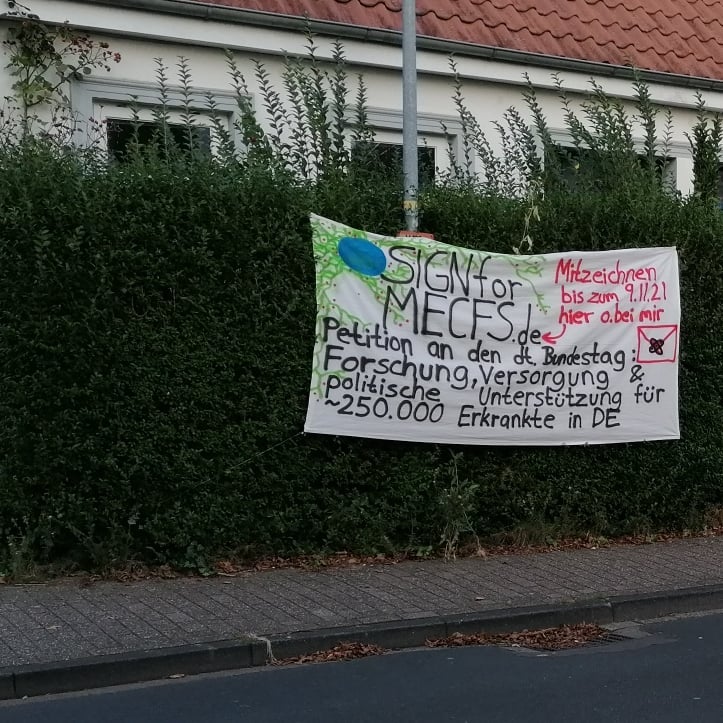 SIGN for
MECFS.de
Mitzeichnen
bis zum 9.11.21
hier o. bei mir
Petition an den dt. Bundestag:
Forschung, Versorgung &
politische Unterstützung für
~250.000 Erkrankte in DE